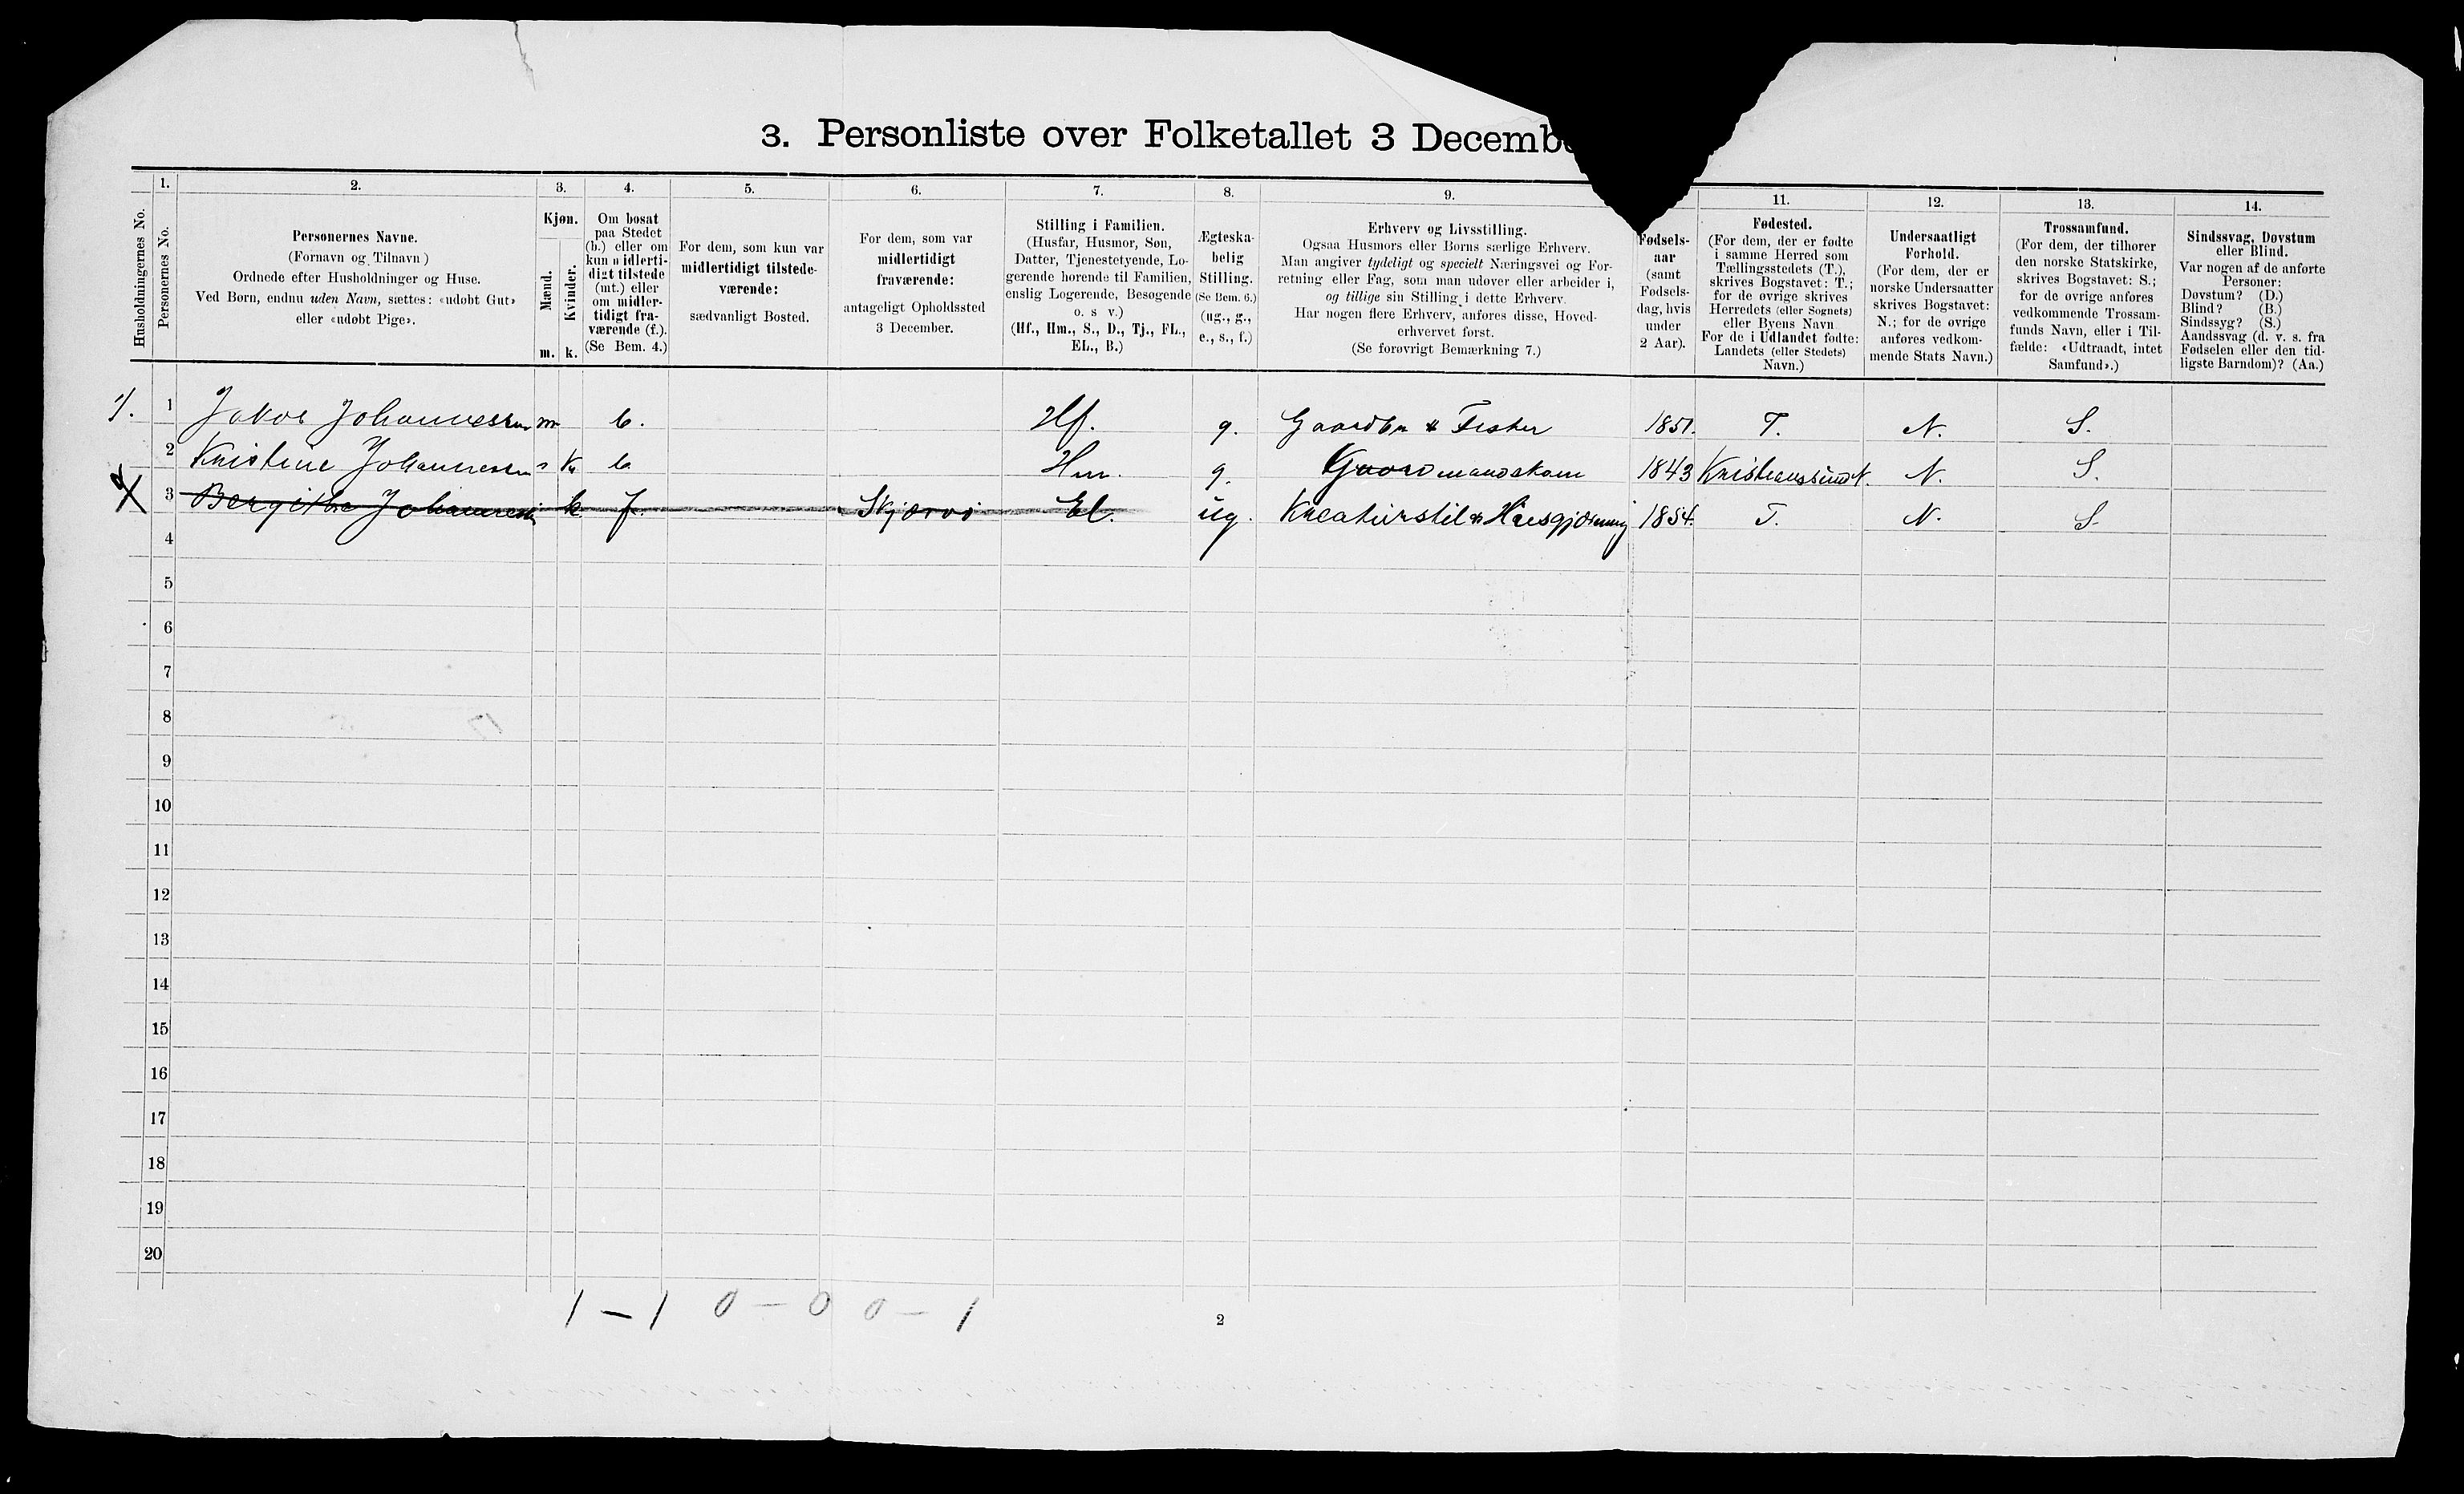 3. Personliste over Folketallet 3 Decembe
Husholdningernes No.
1.
Personernes No.
2.
Personernes Navne.
(Fornavn og Tilnavn)
Ordnede efter Husholdninger og Huse.
Ved Børn, endnu uden Navn, sættes: «udøbt Gut»
eller «udøbt Pige».
3.
Kjøn.
Mænd.
Kvinder.
m. k.
4.
Om bosat
paa Stedet
(b.) eller om
kun midlerti-
digt tilstede
(mt.) eller
om midler-
tidigt fra-
værende (f.).
(Se Bem. 4.)
5.
For dem, som kun var
midlertidigt tilstede-
værende:
sædvanligt Bosted.
6.
For dem, som var
midlertidigt
fraværende:
antageligt Opholdssted
3 December.
7.
Stilling i Familien.
(Husfar, Husmor, Søn,
Datter, Tjenestetyende, Lo-
gerende hørende til Familien,
enslig Logerende, Besøgende
o. s v.)
(Hf., Hm., S., D., Tj., FL.,
EL., B.)
8.
Ægteska-
belig
Stilling.
(Se Bem. 6.)
(ug., g.,
e., s., f.)
9.
Erhverv og Livsstilling.
Ogsaa Husmors eller Børns særlige Erhverv.
Man angiver tydeligt og specielt Næringsvei og For-
retning eller Fag, som man udøver eller arbeider i,
og tillige sin Stilling i dette Erhverv.
Har nogen flere Erhverv, anføres disse, Hoved-
erhvervet først.
(Se forøvrigt Bemærkning 7.)
Fødsels-
aar
(samt
Fødsels-
dag, hvis
under
2 Aar).
11.
Fødested.
(For dem, der er fødte
i samme Herred som
Tællingsstedets (T.),
skrives Bogstavet: T.;
for de øvrige skrives
Herredets (eller Sognets)
eller Byens Navn
For de i Udlandet fødte:
Landets (eller Stedets)
Navn.)
12.
Undersaatligt
Forhold.
(For dem, der er
norske Undersaatter
skrives Bogstavet:
N.; for de øvrige
anføres vedkom-
mende Stats Navn.)
13.
Trossamfund.
(For dem, der tilhører
den norske Statskirke,
skrives Bogstavet: S.;
for de øvrige anføres
vedkommende Trossam-
funds Navn, eller i Til-
fælde: «Udtraadt, intet
Samfund».)
14.
Sindssvag, Døvstum
eller Blind.
Var nogen af de anførte
Personer:
Døvstum? (D.)
Blind? (B.)
Sindssyg? (S.)
Aandssvag (d. v. s. fra
Fødselen eller den tid-
ligste Barndom)? (Aa.)
1. 1 Jakob Johannessen m b. Hf. g. Gaardbr & Fisker 1851. T. N. S.
2 Kristine Johannessen k b Hm. g. Gaardmandskone 1843 Kristianssund N. N. S.
3 Bergithe Johannessen k f. Skjærvø El. ug. Kreaturstel & Husgjerning 1854. T. N. S.
4
5
6
7
8
9
10
11
12
13
14
15
16
17
18
19
20
1 – 1 0 – 0 0 – 1
2